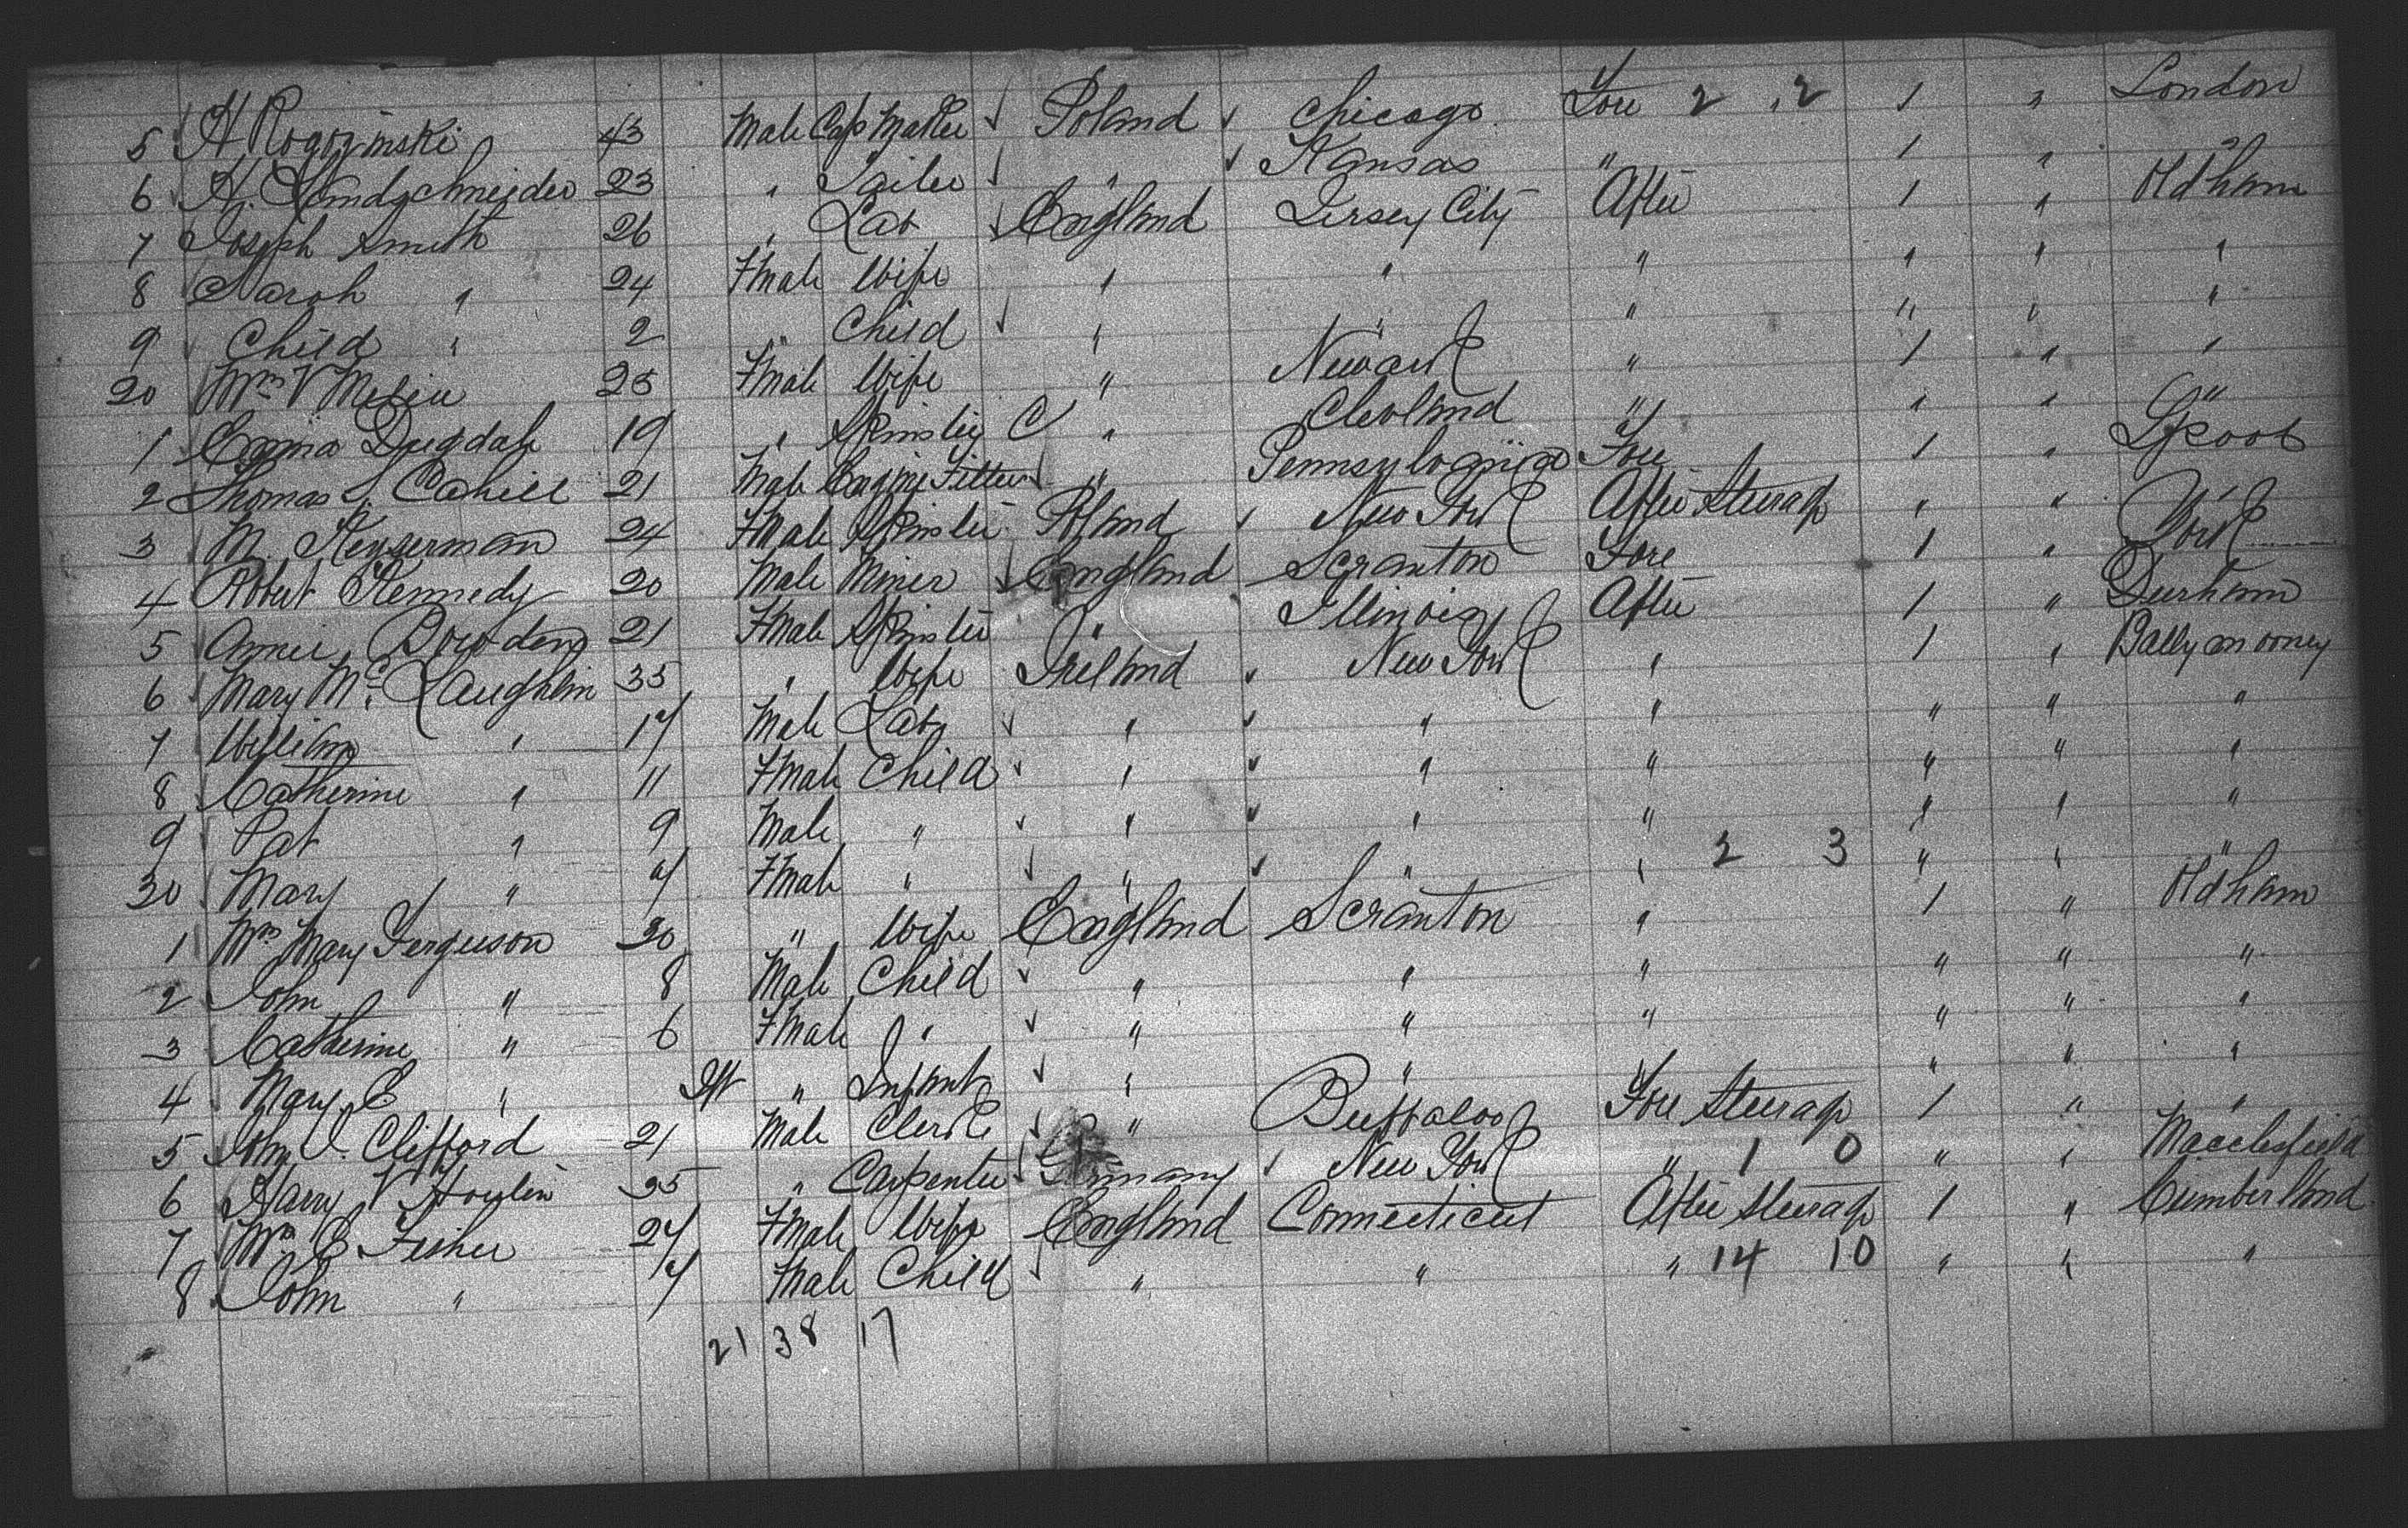 5 H Rogozinski 43 Male Cap Maker Poland Chicago Fore 2 2 1 " London
6 H. Lundschneider 23 " Tailer " Kansas " 1 " "
7 Joseph Smith 26 " Lab England Jersey City After 1 " Oldham
8 Sarah " 24 Fmale Wife " " " " " "
9 Child " 2 " Child " " " " " "
20 Mrs V 25 Fmale Wife " Newark " 1 " "
1 Emma Dugdale 19 " Spinster " Clevland " " " "
2 Thomas Cahill 21 Male Engine Fitter " Pennsylvania Fore 1 " Lpool
3 M. Keyserman 24 Fmale Spinster Poland New York After Steerage " " "
4 Robert Kennedy 20 Male Miner England Scranton Fore 1 " York
5 Annie Bowden 21 Fmale Spinster " Illinois After 1 " Durham
6 Mary McLaughlin 35 " Wife Ireland New York " 1 " Ballymooney
7 William " 17 Male Lab " " " " " "
8 Catherine " 11 Fmale Child " " " " " "
9 Pat " 9 Male " " " " " " "
30 Mary " 7 Fmale " " " " 2 3 " " "
1 Mrs Mary Ferguson 30 " Wife England Scranton " 1 " Oldham
2 John " 8 Male Child " " " " " "
3 Catherine " 6 Fmale " " " " " " "
4 Mary E. " Inft " Infant " " " " " "
5 John J. Clifford 21 Male Clerk " Buffaloo Fore Steerage 1 " "
6 Harry V 35 " Carpenter Germany New York " 1 0 " " Macclesfield
7 Mrs E Fisher 27 Fmale Wife England Connecticut After Steerage 1 " Cumberland
8 John " 7 Male Child " " " 14 10 " " "
21 38 17